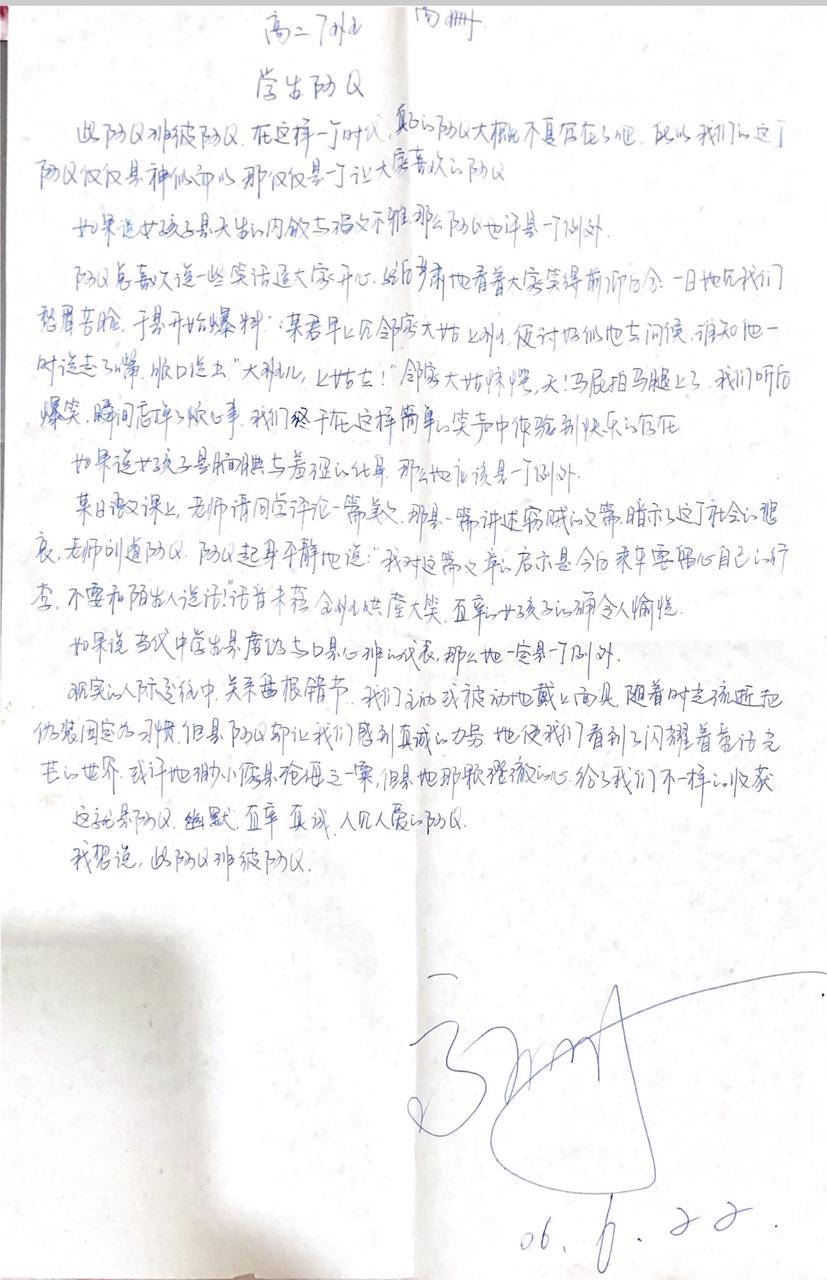 高二7班 高珊
学生阿Q
此阿Q非彼阿Q.在这样一个时代,真正的阿Q大概不复存在了吧.所以我们的这个
阿Q仅仅是神似而以.那仅仅是一个让大家喜欢的阿Q
如果说女孩子是天生的内敛与温文不雅.那么阿Q也许是一个例外.
阿Q总喜欢说一些笑话逗大家开心.然后严肃地看着大家笑得前仰后合.一日她见我们
愁眉苦脸,于是开始爆料":某君早上见邻家大姑上班,便讨好似地去问候,谁知他一
时说走了嘴.顺口说出"大班儿,上姑去!"邻家大姑惊愕,天!马屁拍马腿上了.我们听后
爆笑,瞬间忘掉了烦心事.我们终于在这样简单的笑声中体验到快乐的存在
如果说女孩子是腼腆与羞涩的化身.那么她应该是一个例外.
某日语文课上,老师请同学评论一篇美文.那是一篇讲述窃贼的文章.暗示了这个社会的悲
哀,老师叫道阿Q.阿Q起身平静地说:"我对这篇文章的启示是今后乘车要留心自己的行
李,不要和陌生人说话!"话音未落,全班哄堂大笑.直率的女孩子的确令人愉悦.
如果说当代中学生是虚伪与口是心非的代表,那么她一定是一个例外.
现实的人际交往中.关系盘根错节.我们主动或被动地戴上面具.随着时光流逝把
伪装固定为习惯.但是阿Q却让我们感到真诚的力量.她使我们看到了闪耀着童话光
芒的世界.或许她渺小像是沧海之一粟,但是她那颗澄澈的心.给了我们不一样的收获
这就是阿Q.幽默.直率.真诚.人见人爱的阿Q.
我想说,此阿Q非彼阿Q.
高珊
06.6.22.